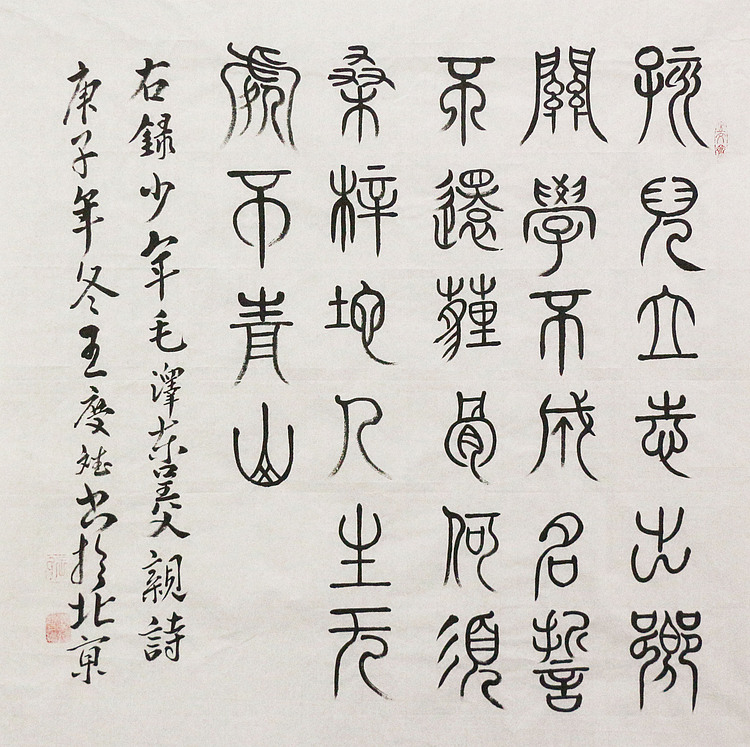 孩兒立志出鄉
關學不成名誓
不還薶骨何須
桑梓地人生无
處不青山
右録少年毛澤东呈父親詩
庚子年冬王度斌书於北京